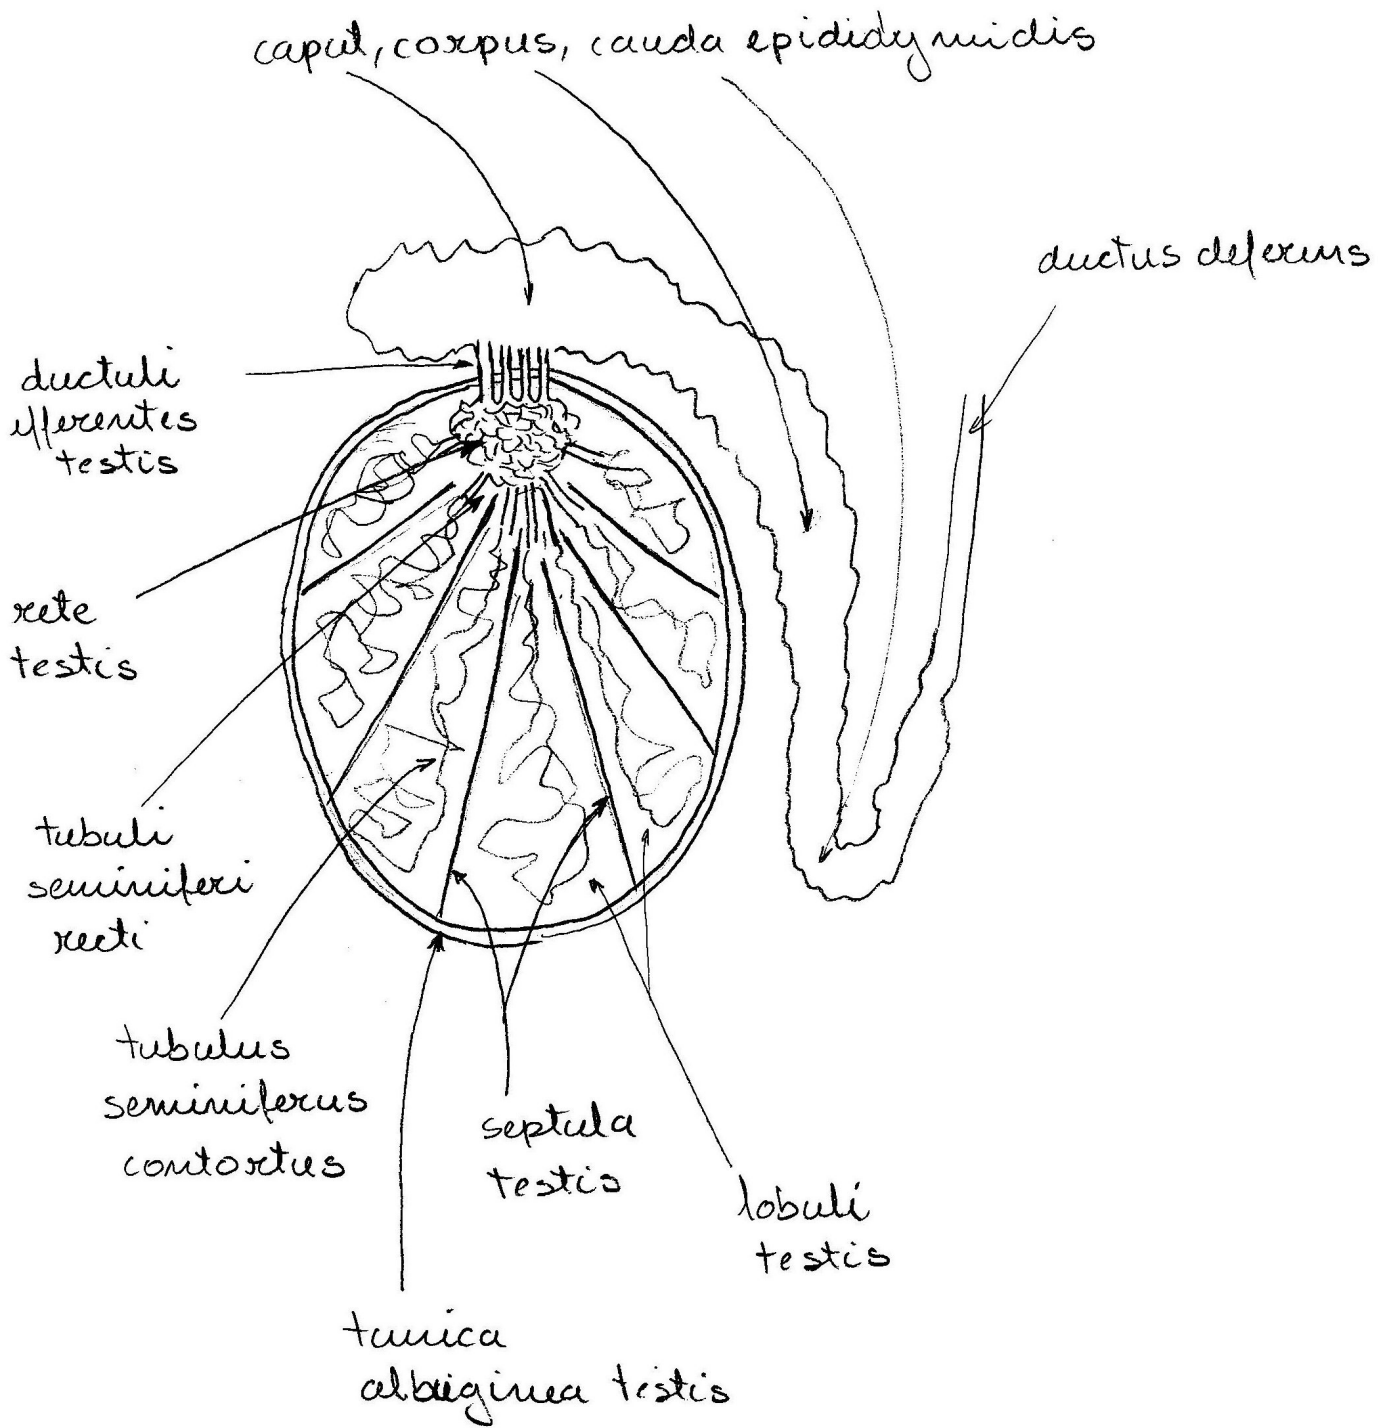 caput, corpus, cauda epididymidis
ductus deferens
ductuli
efferentes
testis
rete
testis
tubuli
seminiferi
recti
tubulus
seminiferus
contortus
septula
testis
lobuli
testis
tunica
albuginea testis